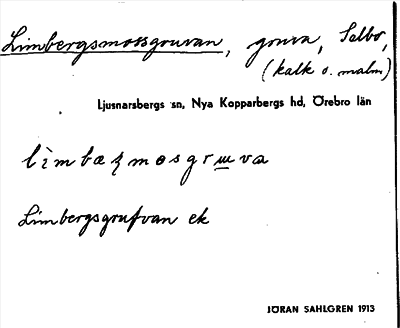 Limbergsmossgruvan, gruva, Salbo,
(kalk o. malm)
Ljusnarsbergs sn, Nya Kopparbergs hd, Örebro län
Limbergsgrufvan ek
JÖRAN SAHLGREN 1913